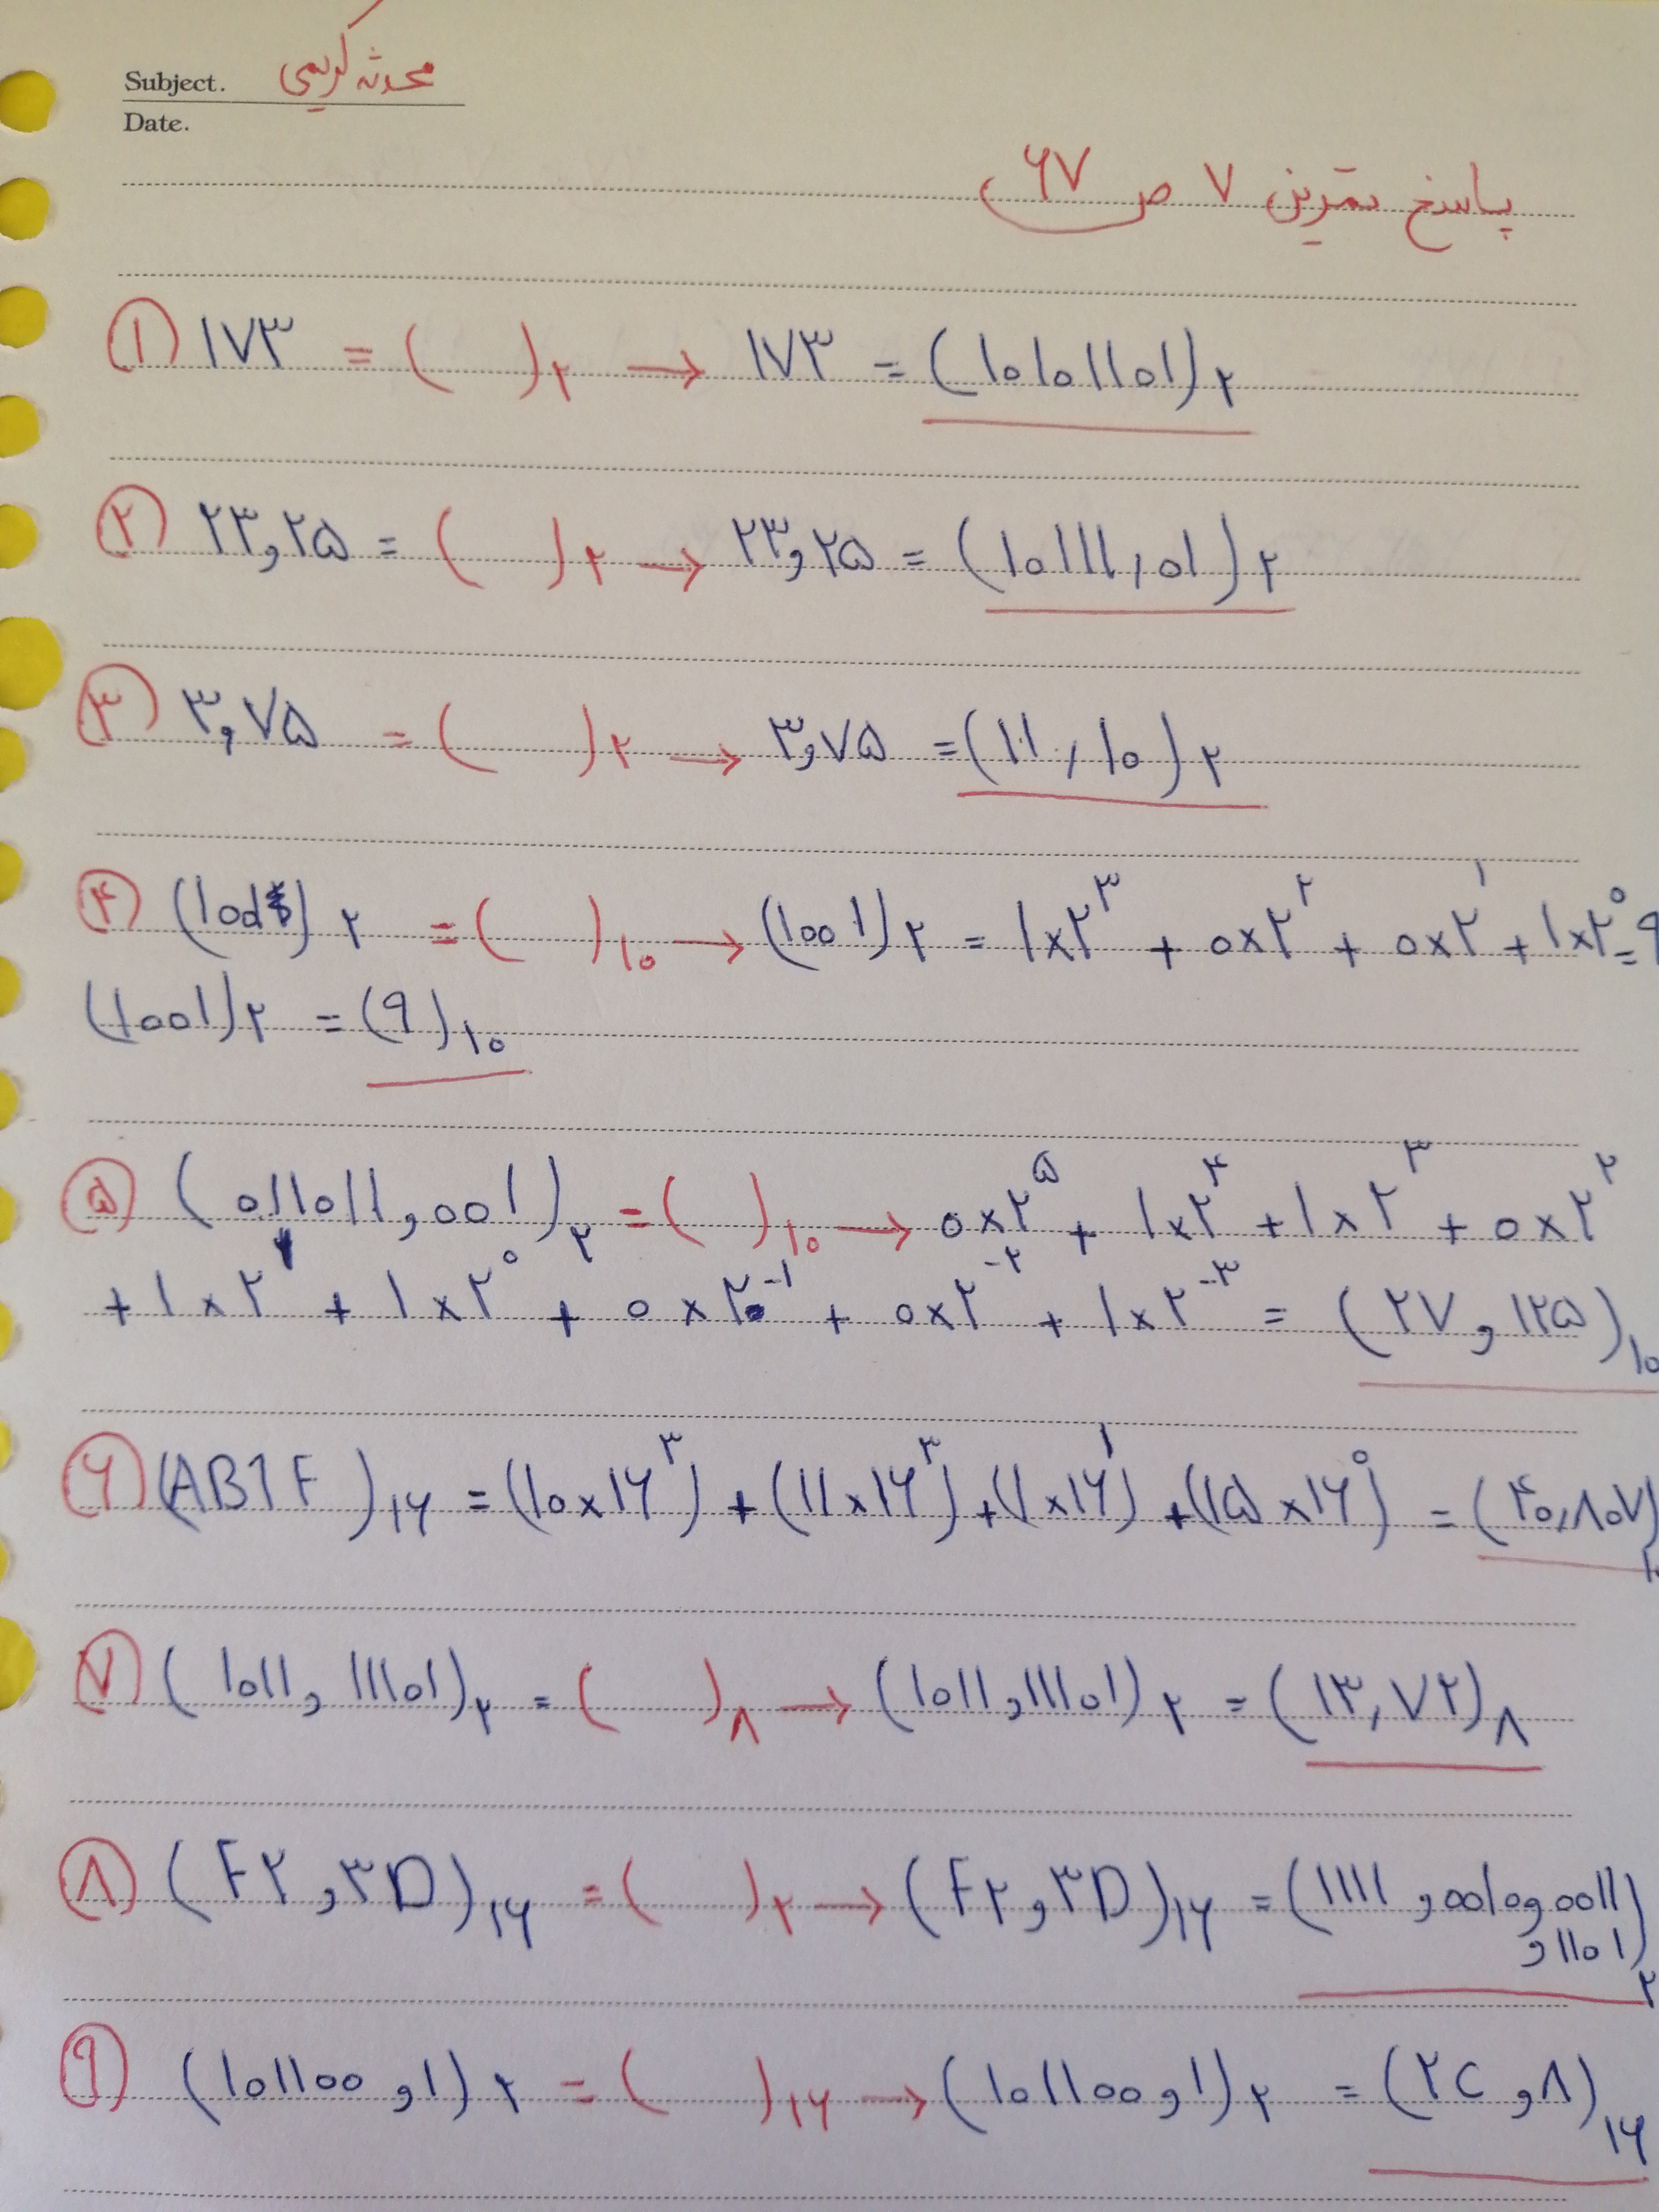 Subject. محدثه کریمی
Date.
پاسخ تمرین ۷ ص ۶۷
① ۱۷۳ = ( )۲ → ۱۷۳ = (۱۰۱۰۱۱۰۱)۲
② ۲۳,۲۵ = ( )۲ → ۲۳,۲۵ = (۱۰۱۱۱,۰۱)۲
③ ۳,۷۵ = ( )۲ → ۳,۷۵ = (۱۱,۱۰)۲
④ ( )۲ = ( )۱۰ → (۱۰۰۱)۲ = ۱×۲³ + ۰×۲² + ۰×۲¹ + ۱×۲⁰ = ۹
(۱۰۰۱)۲ = (۹)۱۰
⑤ (۰۱۱۰۱۱,۰۰۱)۲ = ( )۱۰ → ۰×۲⁵ + ۱×۲⁴ + ۱×۲³ + ۰×۲²
+ ۱×۲¹ + ۱×۲⁰ + ۰×۲⁻¹ + ۰×۲⁻² + ۱×۲⁻³ = (۲۷,۱۲۵)۱۰
⑥ (AB1F)۱۶ = (۱۰×۱۶³) + (۱۱×۱۶³) + (۱×۱۶¹) + (۱۵×۱۶⁰) = (۴۰,۸۰۷)۱۰
⑦ (۱۰۱۱,۱۱۱۰۱)۲ = ( )۸ → (۱۰۱۱,۱۱۱۰۱)۲ = (۱۳,۷۲)۸
⑧ (F۲,۳D)۱۶ = ( )۲ → (F۲,۳D)۱۶ = (۱۱۱۱,۰۰۱۰,۰۰۱۱
,۱۱۰۱)۲
⑨ (۱۰۱۱۰۰,۱)۲ = ( )۱۶ → (۱۰۱۱۰۰,۱)۲ = (۲C,۸)۱۶